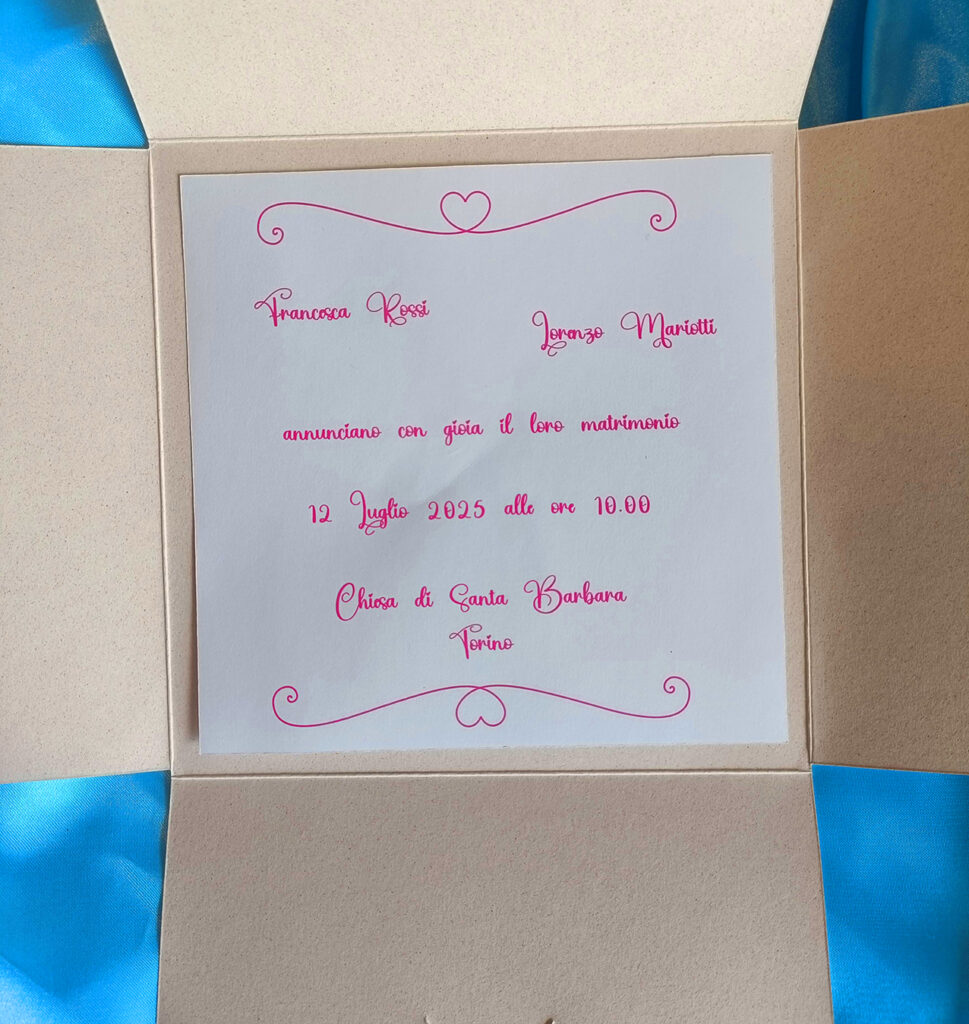 Francesca Rossi
Lorenzo Mariotti
annunciano con gioia il loro matrimonio
12 Luglio 2025 alle ore 10.00
Chiesa di Santa Barbara
Torino